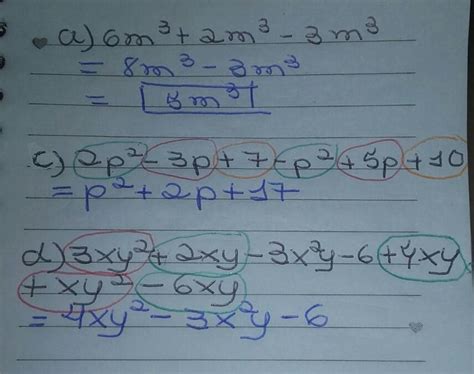 a) 6m³ + 2m³ - 3m³
= 8m³ - 3m³
= 5m³
c) 2p² - 3p + 7 - p² + 5p + 10
= p² + 2p + 17
d) 3xy² + 2xy - 3x²y - 6 + 4xy
+ xy² - 6xy
= 4xy² - 3x²y - 6